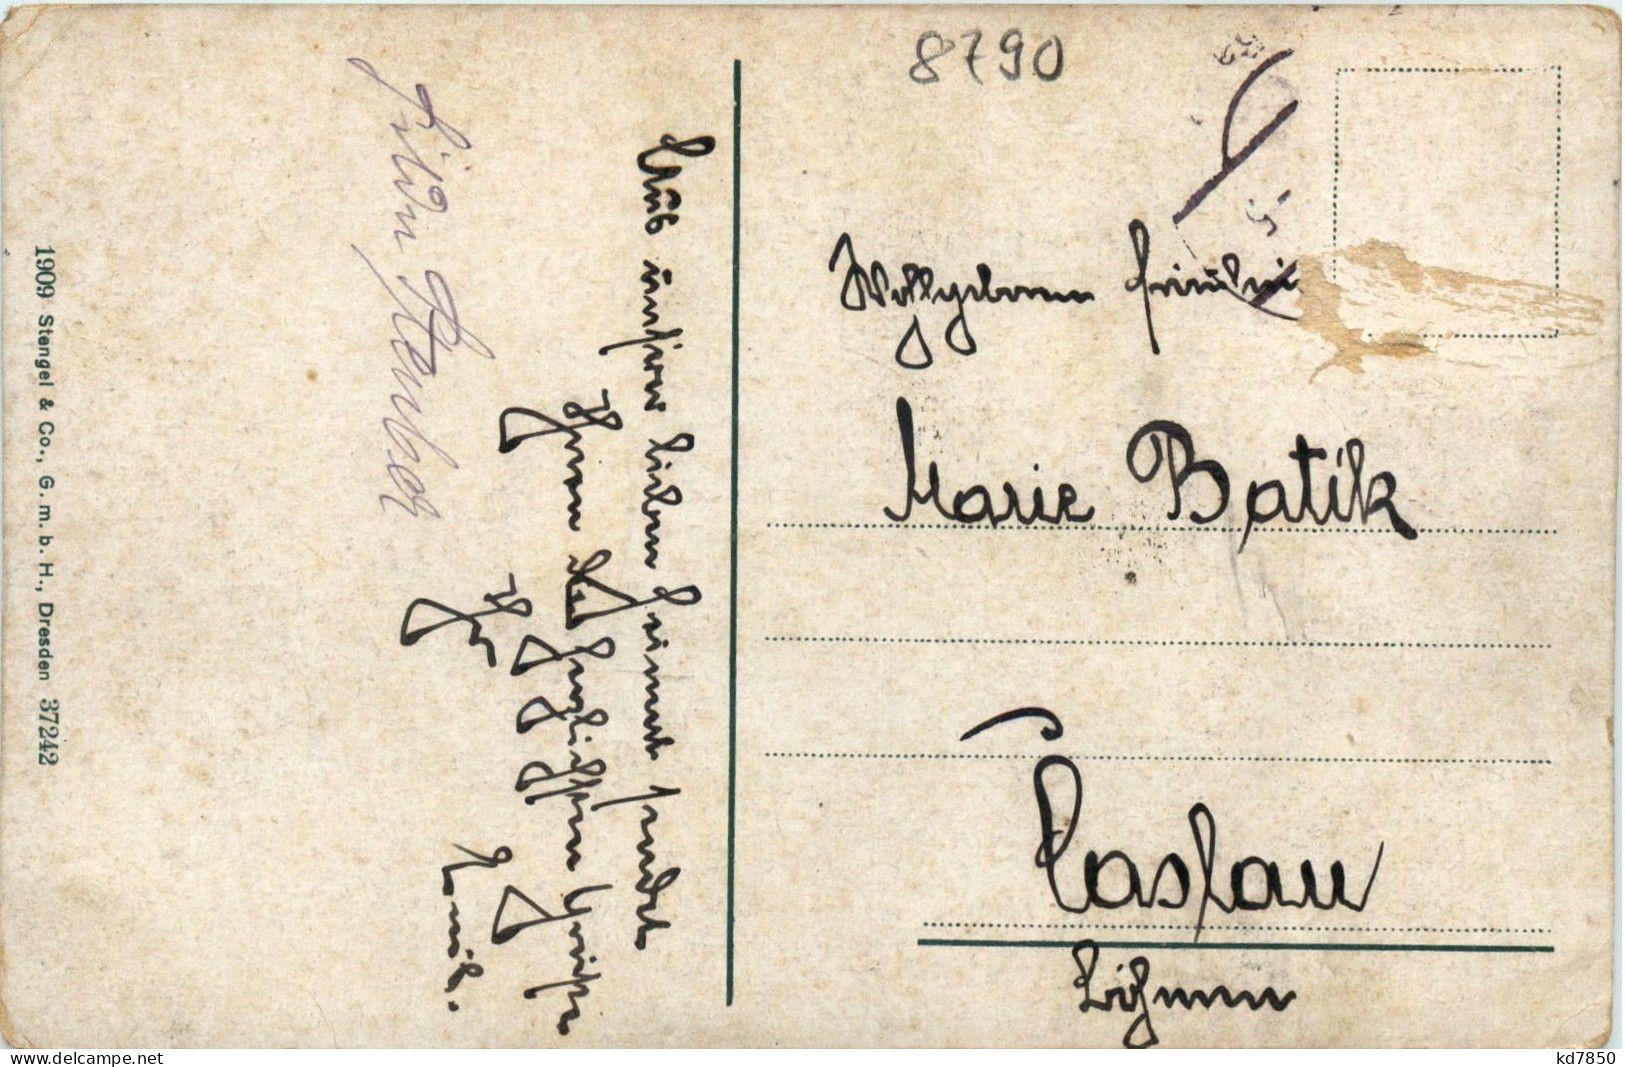 8790
Wohlgeboren Fräulein
Marie Batik
Caslau
Böhmen
Aus unserer lieben Heimat sendet
Ihnen die herzlichsten Grüße
Ihr
1909 Stengel & Co., G. m. b. H., Dresden 37242
kd7850
© www.delcampe.net